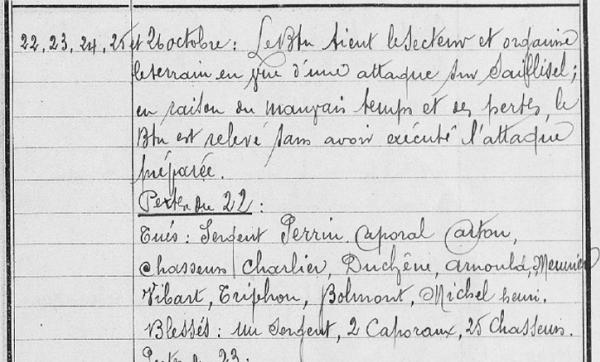 22, 23, 24, 25 et 26 octobre : Le Btn tient le secteur et organise
le terrain en vue d'une attaque sur Saillisel ;
en raison du mauvais temps et des pertes, le
Btn est relevé sans avoir exécuté l'attaque
préparée.
Pertes du 22 :
Tués : Sergent Perrin. Caporal Carton,
Chasseurs Charlier, Duchêne, Arnould, Meunier
Vibart, Triphon, Bolmont, Michel henri.
Blessés : un Sergent, 2 Caporaux, 25 Chasseurs.
Pertes du 23 :